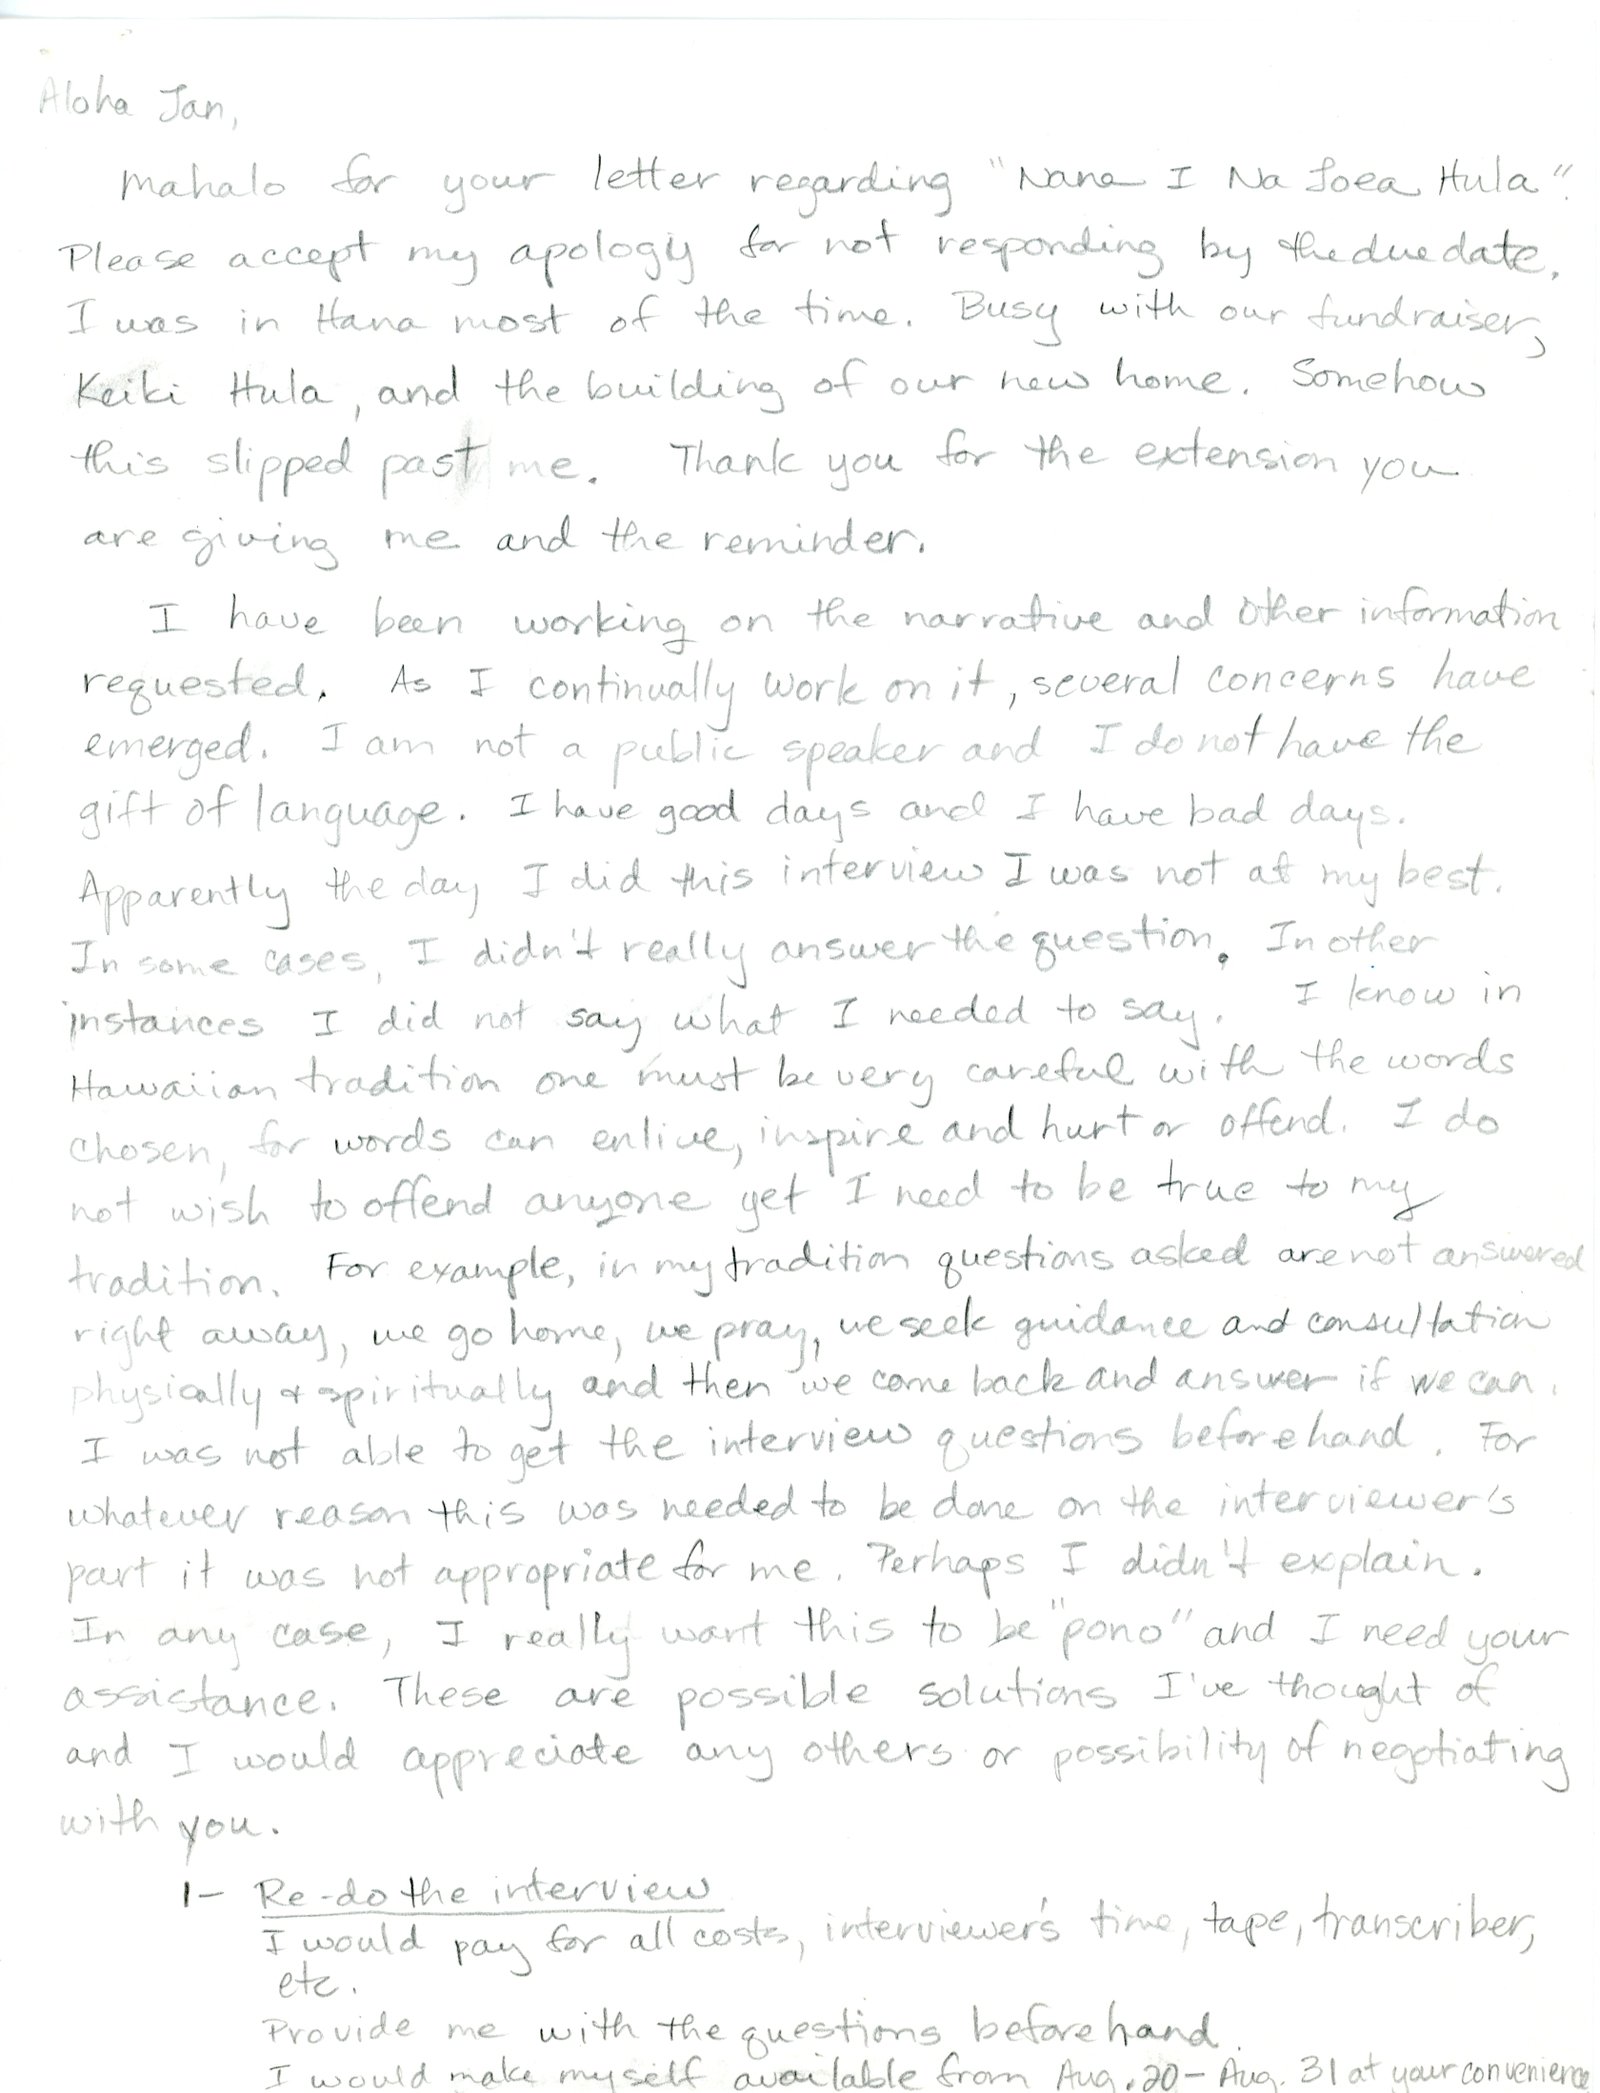 Aloha Jan,
Mahalo for your letter regarding "Nana I Na Loea Hula".
Please accept my apology for not responding by the due date.
I was in Hana most of the time. Busy with our fundraiser,
Keiki Hula, and the building of our new home. Somehow
this slipped past me. Thank you for the extension you
are giving me and the reminder.
I have been working on the narrative and other information
requested. As I continually work on it, several concerns have
emerged. I am not a public speaker and I do not have the
gift of language. I have good days and I have bad days.
Apparently the day I did this interview I was not at my best.
In some cases, I didn't really answer the question. In other
instances I did not say what I needed to say. I know in
Hawaiian tradition one must be very careful with the words
chosen, for words can enlive, inspire and hurt or offend. I do
not wish to offend anyone yet I need to be true to my
tradition. For example, in my tradition questions asked are not answered
right away, we go home, we pray, we seek guidance and consultation
physically & spiritually and then we come back and answer if we can.
I was not able to get the interview questions beforehand. For
whatever reason this was needed to be done on the interviewer's
part it was not appropriate for me. Perhaps I didn't explain.
In any case, I really want this to be "pono" and I need your
assistance. These are possible solutions I've thought of
and I would appreciate any others or possibility of negotiating
with you.
1- Re-do the interview
I would pay for all costs, interviewer's time, tape, transcriber,
etc.
Provide me with the questions beforehand
I would make myself available from Aug. 20 - Aug. 31 at your convenience